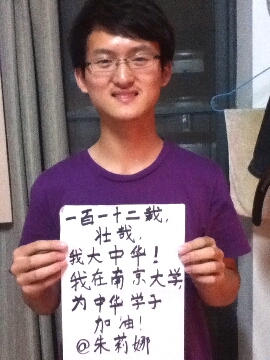 一百一十二载,
壮哉,
我大中华!
我在南京大学,
为中华学子
加油!
@朱莉娜